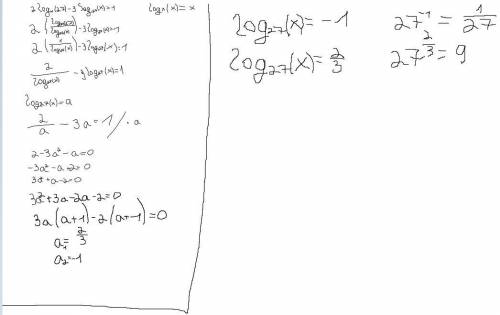 2 log_x(27) - 3 log_27(x) = 1 log_x(x) = x
2 (log_27(27)/log_27(x)) - 3 log_27(x) = 1
2 / log_27(x) - 3 log_27(x) = 1
log_27(x) = a
2/a - 3a = 1 / · a
2 - 3a² - a = 0
-3a² - a + 2 = 0
3a² + a - 2 = 0
3a² + 3a - 2a - 2 = 0
3a(a+1) - 2(a+1) = 0
a₁ = 2/3
a₂ = -1
log₂₇(x) = -1 27⁻¹ = 1/27
log₂₇(x) = 2/3 27^(2/3) = 9